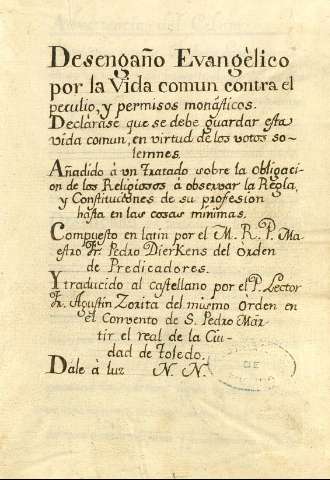 Desengaño Evangèlico
por la Vida comun contra el
peculio, y permisos monásticos.
Declárase que se debe guardar esta
vida comun, en virtud de los votos so-
lemnes.
Añadido à un Tratado sobre la Obligaci-
on de los Religiosos à observar la Regla,
y Constituciones de su profesion
hasta en las cosas mínimas.
Compuesto en latin por el M. R. P. Ma-
estro Fr. Pedro Dierkens del Orden
de Predicadores.
Y traducido al castellano por el P. Lector
Fr. Agustin Zorita del mismo Orden en
el Convento de S. Pedro Már-
tir el real de la Ciu-
dad de Toledo.
Dale à luz N. N.
DE